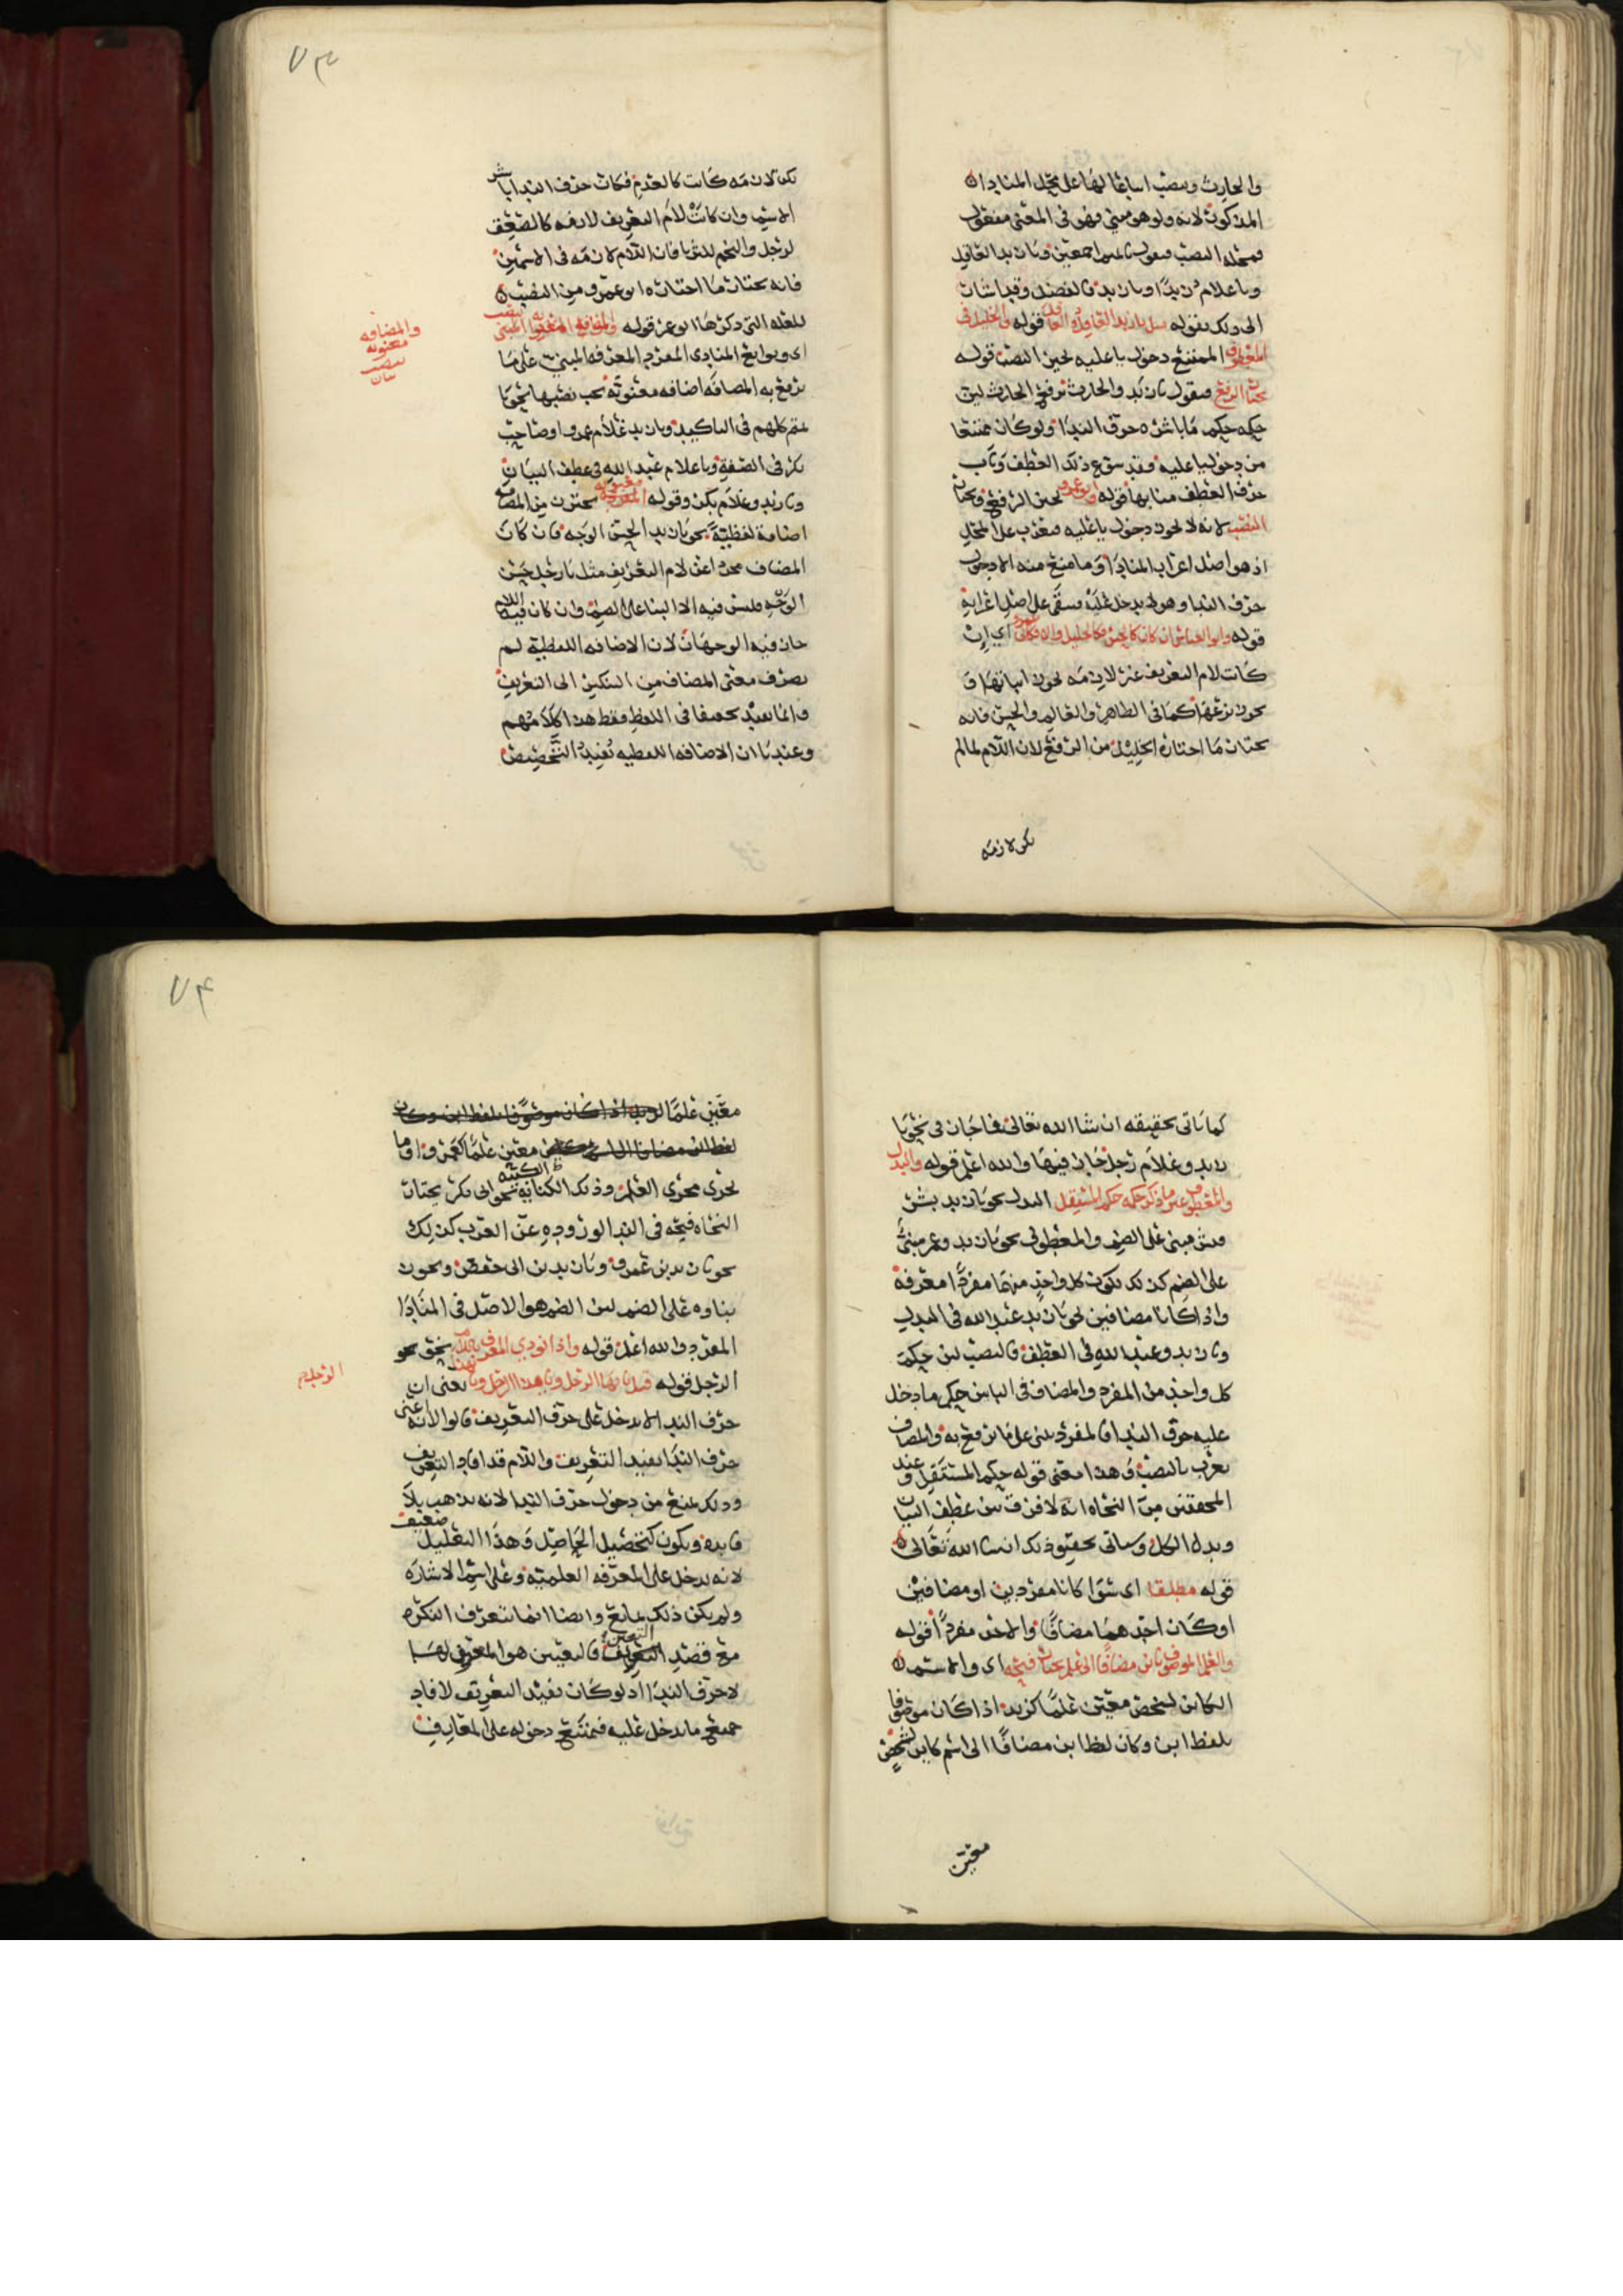 والحارث وينصب اتباعا لهما على محل المنادا
المذكور لانه ولو هو مبني فهو في المعنى مفعول
فمحله النصب فتقول يا تميم اجمعين ويا زيد العاقل
ويا غلام زيدا ويا زيد والفضل وقد اشار
الى ذلك بقوله مثل يا زيد العاقل والعاقل قوله والخليل في
المعطوف الممتنع دخول يا عليه لحين النصب قوله
يختار الرفع فيقول يا زيد والحارث برفع الحارث لين
حكمه حكم ما باشره حرف الندا ولو كان ممتنعا
من دخول يا عليه فقد سوع ذلك العطف وناب
حرف العطف منابها قوله وابو عمرو لحين الرفع ويختار
النصب لانه لا يجوز دخول يا عليه فيعرب على المحل
اذ هو اصل اعراب المنادا وما منع منه الا دخول
حرف الندا وهو لم يدخل عليه فبقى على اصل اعرابه
قوله وابو العباس ان كان كالحسن فكالخليل والا فكابي عمرو اي ان
كانت لام التعريف غير لازمه يجوز اثباتها و
يجوز نزعها كما في الطاهر والغالم والحسن فانه
يختار ما اختاره الخليل من الرفع لان اللام لما لم
تكن لازمه
٧٣
تكن لازمه كانت كالعدم فكان حرف الندا باشر
الاسم وان كانت لام التعريف لازمه كالصعق
لرجل والنجم للثريا فان اللام لازمه في الاسمين
فانه يختار ما اختاره ابو عمرو من النصب
للعله التي ذكرها ابو عمر قوله والمضافه المعنويه تنصب اعني
اي وتوابع المنادى المفرد المعرفه المبني على ما
يرفع به المضافه اضافه معنويه يجب نصبها نحو يا
تميم كلهم في التاكيد ويا زيد غلام عمرو او صاحب
بكر في الصفة ويا غلام عبد الله في عطف البيان
ويا زيد وغلام بكر وقوله معنويه يحترز من المضافه
اضافة لفظية نحو يا زيد الحسن الوجه فان كان
المضاف مجردا عن لام التعريف مثل يا رجل حسن
الوجه فليس فيه الا البنا على الضم وان كان فيه اللام
جاز فيه الوجهان لان الاضافه اللفظية لم
تصرف معنى المضاف من التنكير الى التعريف
وانما تفيد تخفيفا في اللفظ فقط هذا كلامهم
وعندنا ان الاضافه اللفظيه تفيد التخصيص
والمضافه
معنويه
تنصب
٧٤
كما ياتي تحقيقه ان شا الله تعالى فاجاز في نحو يا
زيد وغلام رجل جاز فيها والله اعلم قوله والبدل
والمعطوف غير ما ذكر حكمه حكم المستقل البدل نحو يا زيد بشر
فبشر مبني على الضم والمعطوف نحو يا زيد وعمر مبني
على الضم كذلك تكون كل واحد منهما مفردا معرفه
واذا كانا مضافين نحو يا زيد عبد الله في البدل
ويا زيد وعبد الله في العطف فالنصب لين حكمه
كل واحد من المفرد والمضاف في البابين حكم ما دخل
عليه حرف الندا فالمفرد يبنى على ما يرفع به والمضاف
يعرب بالنصب وهذا معنى قوله حكم المستقل وعند
المحققين من النحاه انه لا فرق بين عطف البيان
وبدل الكل وسياتي تحقيق ذلك ان شا الله تعالى
قوله مطلقا اي سوا كانا مفردين او مضافين
او كان احدهما مضافا والاخر مفردا قوله
والعلم الموصوف بابن مضافا الى علم يختار فتحه اي والاسم
الكاين لشخص معين علما كزيد اذا كان موصوفا
بلفظ ابن وكان لفظ ابن مضافا الى اسم كاين لشخص
معين
معين علما
معين علما كعمرو او ما
يجري مجرى العلم وذلك الكنيه نحو ابي بكر يختار
النحاه فتحه في الندا لوروده عن العرب كذلك
نحو يا زيد بن عمرو ويا زيد بن ابي حفص ويجوز
بناوه على الضم لين الضم هو الاصل في المنادا
المفرد والله اعلم قوله واذا نودي المعرف باللام نحو
الرجل قوله قيل يا ايها الرجل ويا هذا الرجل ويا يعني ان
حرف الندا لا يدخل على حرف التعريف قالوا لانه اعني
حرف الندا يفيد التعريف واللام قد افاد التعريف
وذلك يمنع من دخول حرف الندا لانه يذهب بلا
فايده ويكون كتحصيل الحاصل وهذا التعليل ضعيف
لانه يدخل على المعرفه العلميه وعلى اسم الاشاره
ولم يكن ذلك مانع وايضا انما تتعرف النكره
مع قصد التعيين فالتعيين هو المعرف لها
لا حرف الندا اذ لو كان يفيد التعريف لافاد
جميع ما يدخل عليه فيمتنع دخوله على المعارف
الرجل